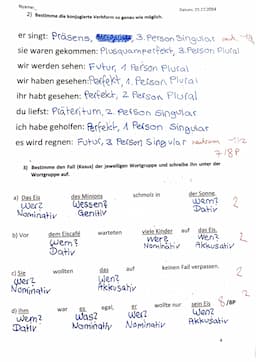 Name: Datum: 05.12.2024
2) Bestimme die konjugierte Verbform so genau wie möglich.
er singt: Präsens, 3. Person Singular
sie waren gekommen: Plusquamperfekt, 3. Person Plural
wir werden sehen: Futur, 1 Person Plural
wir haben gesehen: Perfekt, 1. Person Plural
ihr habt gesehen: Perfekt, 2 Person Plural
du liefst: Präteritum, 2. Person Singular
ich habe geholfen: Perfekt, 1 Person Singular
es wird regnen: Futur, 3 Person Singular neutrum -1/2
7/8P
3) Bestimme den Fall (Kasus) der jeweiligen Wortgruppe und schreibe ihn unter der
Wortgruppe auf.
a) Das Eis des Minions schmolz in der Sonne.
Wer? Wessen? Wem? 2
Nominativ Genitiv Dativ
b) Vor dem Eiscafé warteten viele Kinder auf das Eis.
Wem? Wer? Wen? 2
Dativ Nominativ Akkusativ
c) Sie wollten das auf keinen Fall verpassen.
Wer? Wen? 2
Nominativ Akkusativ
d) Ihm war es egal, er wollte nur sein Eis. 8/8P
Wem? Was? Wer? Wen? 2
Dativ Nominativ Nominativ Akkusativ